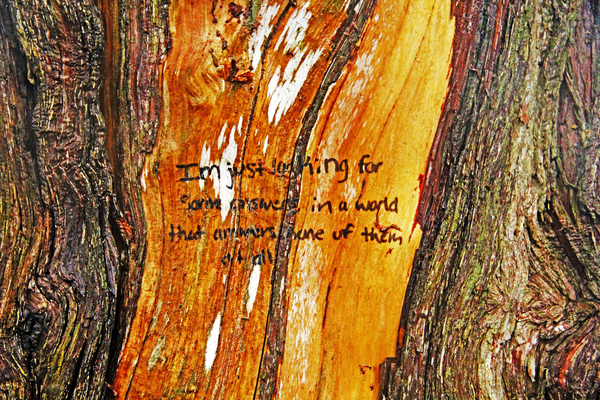 I'm just looking for
Some answers in a world
that answers none of them
at all